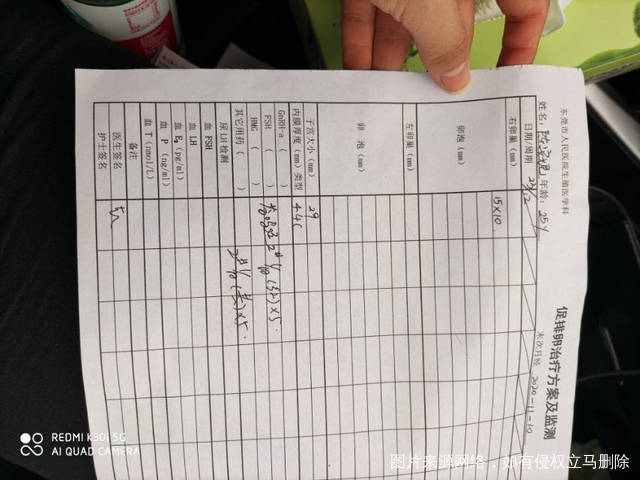 东莞市人民医院生殖医学科
促排卵治疗方案及监测
姓名: 年龄: 25Y 末次月经 2020-11-10
日期/周期
右卵巢 (mm) 15×10
卵泡 (mm)
左卵巢 (mm)
卵 泡 (mm)
子宫大小 (mm) 29
内膜厚度 (mm) 类型 4.4C
GnRH-a ( )
FSH ( )
HMG ( )
其它用药 ( )
尿LH检测
血 FSH
血 LH
血 E₂ (pg/ml)
血 P (ng/ml)
血 T (nmol/L)
备注
医生签名
护士签名
REDMI K30i 5G
AI QUAD CAMERA
图片来源网络，如有侵权立马删除